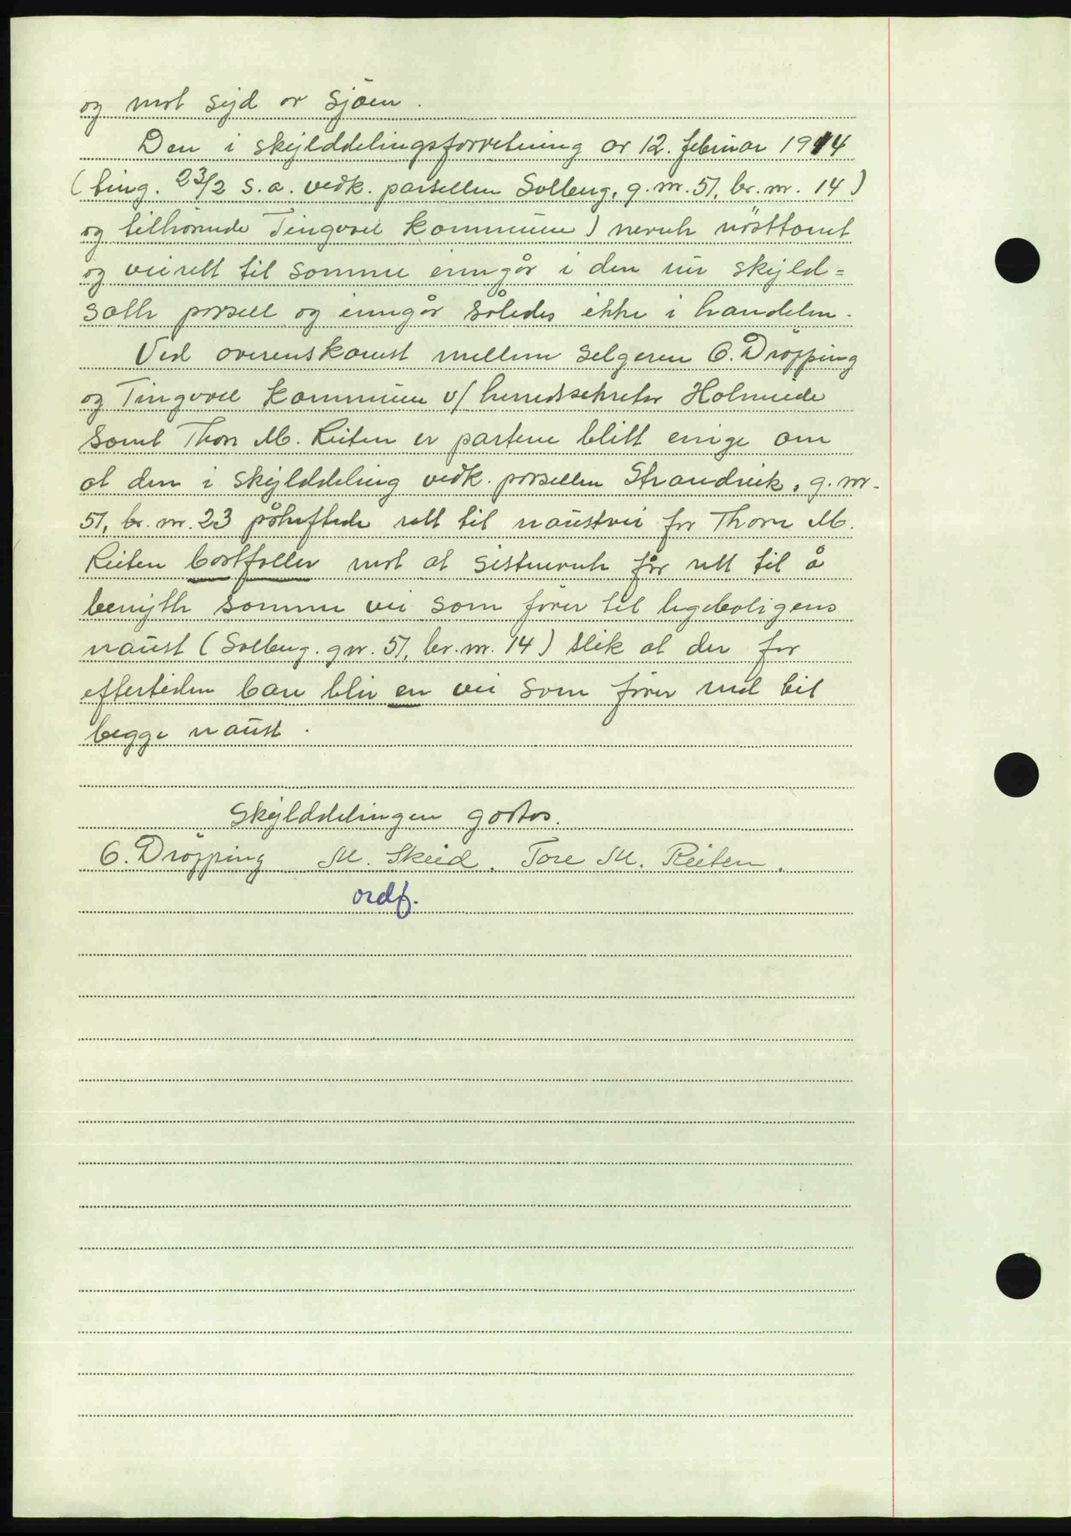 og mot syd av sjøen.
Den i skylddelingsforretning av 12. februar 1914
(ting. 23/2 s.a. vedk. parsellen Solberg, g.nr. 51, br.nr. 14)
og tilhørende Tingvoll kommune) nevnte nøsttomt
og veirett til samme inngår i den nu skyld=
satte parsell og inngår således ikke i handelen.
Ved overenskomst mellem selgeren O. Drøpping
og Tingvoll kommune v/ herredssekretær Holmeide
samt Thore M. Reiten er partene blitt enige om
at den i skylddeling vedk. parsellen Strandvik, g.nr.
51, br.nr. 23 påheftede rett til naustvei for Thore M.
Reiten bortfaller mot at sistnevnte får rett til å
benytte samme vei som fører til legeboligens
naust (Solberg. gnr. 51, br.nr. 14) slik at der for
eftertiden bare blir en vei som fører ned til
begge naust.
Skylddelingen godtas.
O. Drøpping M. Skeid. Tore M. Reiten.
ordf.